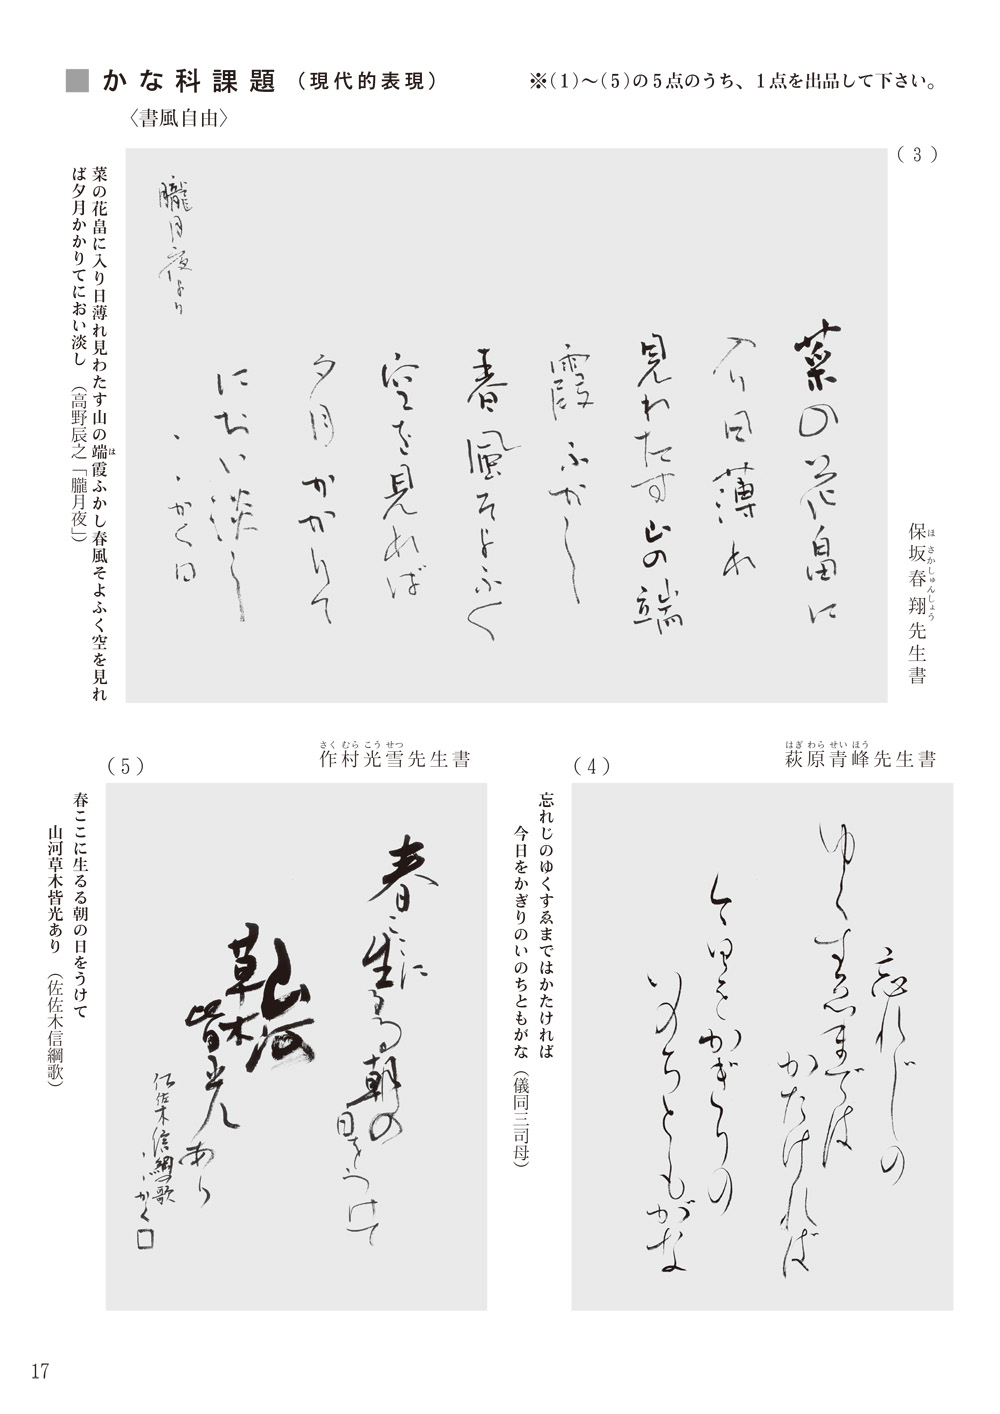 ■かな科課題（現代的表現）
※（1）～（5）の５点のうち、１点を出品して下さい。
〈書風自由〉
（3）
保坂春翔先生書
ほさかしゅんしょう
菜の花畠に
入り日薄れ
見わたす山の端
霞ふかし
春風そよふく
空を見れば
夕月かかりて
におい淡し
朧月夜より
、、かく日
菜の花畠に入り日薄れ見わたす山の端霞ふかし春風そよふく空を見れ
は
ば夕月かかりてにおい淡し（高野辰之「朧月夜」）
（4）
はぎわらせいほう
萩原青峰先生書
忘れじの
ゆくすゑまでは
かたければ
今日をかぎりの
いのちともがな
忘れじのゆくすゑまではかたければ
今日をかぎりのいのちともがな（儀同三司母）
（5）
さくむらこうせつ
作村光雪先生書
春ここに
生るる朝の
日をうけて
山河
草木
皆光あり
佐佐木信綱歌
、、かく□
春ここに生るる朝の日をうけて
山河草木皆光あり（佐佐木信綱歌）
17